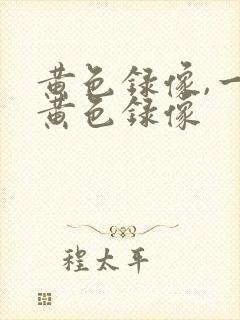 黄色録像,一
黄色録像
程太平